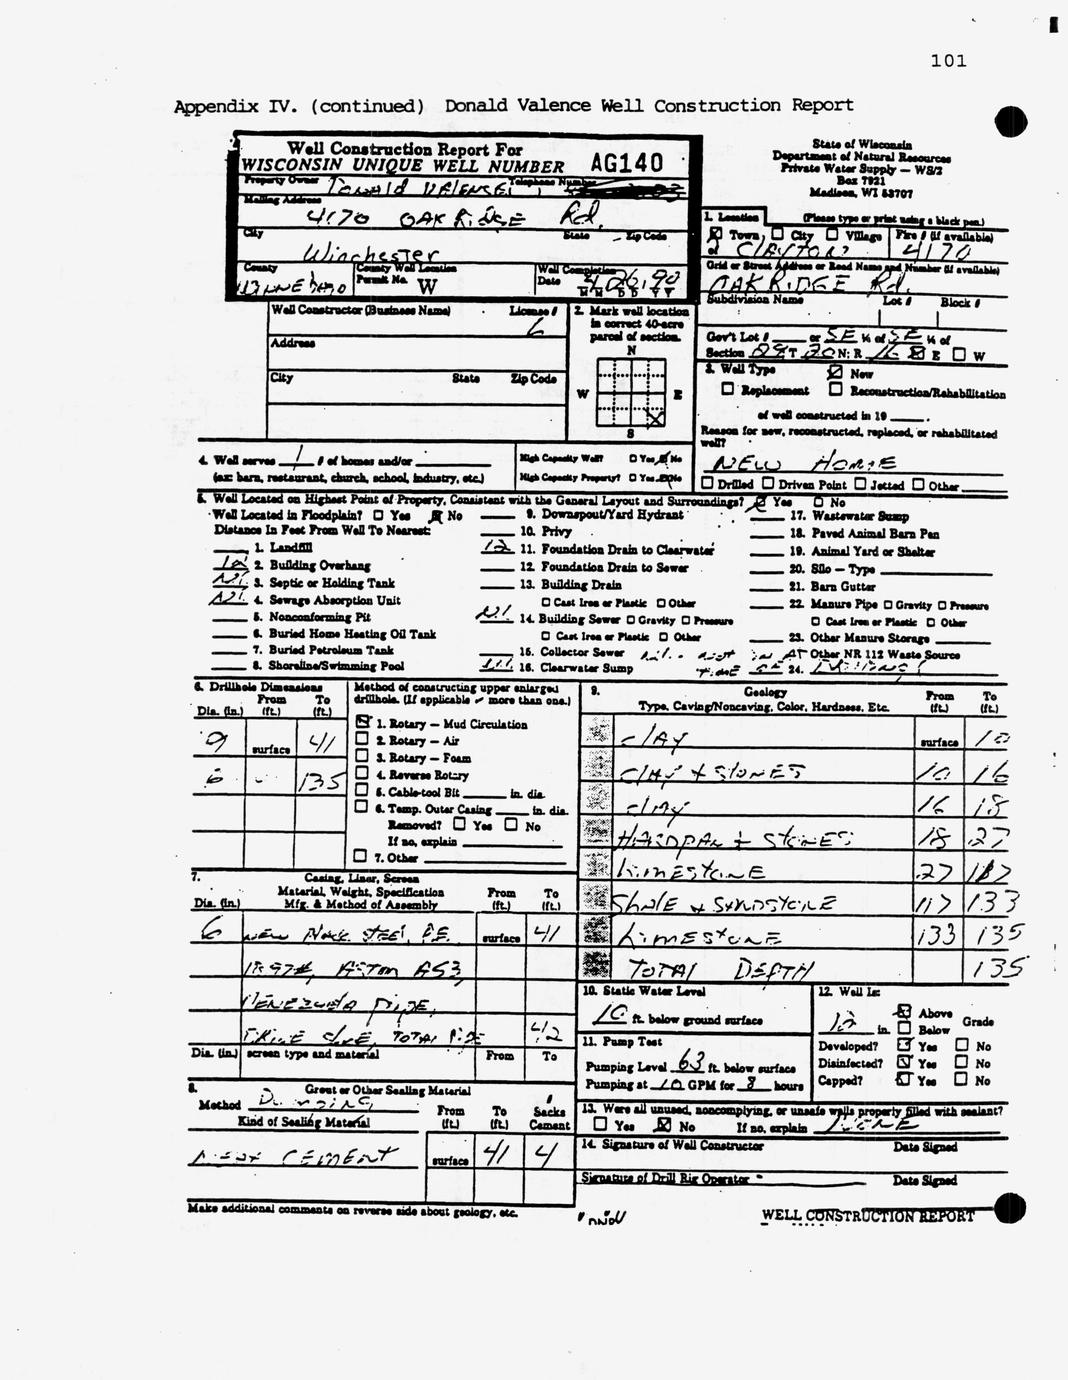 101
Appendix IV. (continued) Donald Valence Well Construction Report
Well Construction Report For
WISCONSIN UNIQUE WELL NUMBER AG140
State of Wisconsin
Department of Natural Resources
Private Water Supply — WS/2
Box 7921
Madison, WI 53707
Property Owner Telephone Number
Mailing Address
4170 OAK RIDGE Rd.
City State Zip Code
Winchester
County County Well Location Permit No. W Well Completion Date
M M D D Y Y
1. Location (Please type or print using a black pen.)
Town City Village Fire # (if available)
of CLAYTON 4170
Grid or Street Address or Road Name and Number (if available)
OAK RIDGE Rd.
Subdivision Name Lot # Block #
Gov't Lot # or SE ¼ of SE ¼ of
Section T 20 N; R 16 E W
Well Constructor (Business Name) License #
6
Address
City State Zip Code
2. Mark well location
in correct 40-acre
parcel of section.
N
W E
S
3. Well Type New
Replacement Reconstruction/Rehabilitation
of well constructed in 19 .
Reason for new, reconstructed, replaced, or rehabilitated
well?
NEW HOME
Drilled Driven Point Jetted Other
4. Well serves 1 # of homes and/or
(ex: barn, restaurant, church, school, industry, etc.)
High Capacity Well? Yes No
High Capacity Property? Yes No
5. Well Located on Highest Point of Property, Consistent with the General Layout and Surroundings? Yes No
Well Located in Floodplain? Yes No
Distance In Feet From Well To Nearest:
1. Landfill
2. Building Overhang
3. Septic or Holding Tank
4. Sewage Absorption Unit
5. Nonconforming Pit
6. Buried Home Heating Oil Tank
7. Buried Petroleum Tank
8. Shoreline/Swimming Pool
9. Downspout/Yard Hydrant
10. Privy
12 11. Foundation Drain to Clearwater
12. Foundation Drain to Sewer
13. Building Drain
Cast Iron or Plastic Other
14. Building Sewer Gravity Pressure
Cast Iron or Plastic Other
15. Collector Sewer
16. Clearwater Sump
17. Wastewater Sump
18. Paved Animal Barn Pen
19. Animal Yard or Shelter
20. Silo — Type
21. Barn Gutter
22. Manure Pipe Gravity Pressure
Cast Iron or Plastic Other
23. Other Manure Storage
Other NR 112 Waste Source
24.
6. Drillhole Dimensions
Dia. (in.) From (ft.) To (ft.)
9 surface 41
6 135
Method of constructing upper enlarged
drillhole. (If applicable ✓ more than one.)
1. Rotary — Mud Circulation
2. Rotary — Air
3. Rotary — Foam
4. Reverse Rotary
5. Cable-tool Bit in. dia.
6. Temp. Outer Casing in. dia.
Removed? Yes No
If no, explain
7. Other
7. Casing, Liner, Screen
Material, Weight, Specification
Dia. (in.) Mfg. & Method of Assembly From (ft.) To (ft.)
6 NEW BLACK STEEL, P.E. surface 41
18.97#, ASTM A53,
VENEZUELA PIPE,
DRIVE SHOE, TOTAL PIPE 42
Dia. (in.) screen type and material From To
8. Grout or Other Sealing Material
Method
Kind of Sealing Material From (ft.) To (ft.) Sacks Cement
NEAT CEMENT surface 41 4
9. Geology
Type, Caving/Noncaving, Color, Hardness, Etc. From (ft.) To (ft.)
CLAY surface 10
CLAY & STONES 10 16
CLAY 16 18
HARDPAN & STONES 18 27
LIMESTONE 27 117
SHALE & SANDSTONE 117 133
LIMESTONE 133 135
TOTAL DEPTH 135
10. Static Water Level
10 ft. below ground surface
11. Pump Test
Pumping Level 63 ft. below surface
Pumping at 10 GPM for 8 hours
12. Well Is:
12 in. Above Below Grade
Developed? Yes No
Disinfected? Yes No
Capped? Yes No
13. Were all unused, noncomplying, or unsafe wells properly filled with sealant?
Yes No If no, explain NONE
14. Signature of Well Constructor Date Signed
Signature of Drill Rig Operator Date Signed
Make additional comments on reverse side about geology, etc.
WELL CONSTRUCTION REPORT